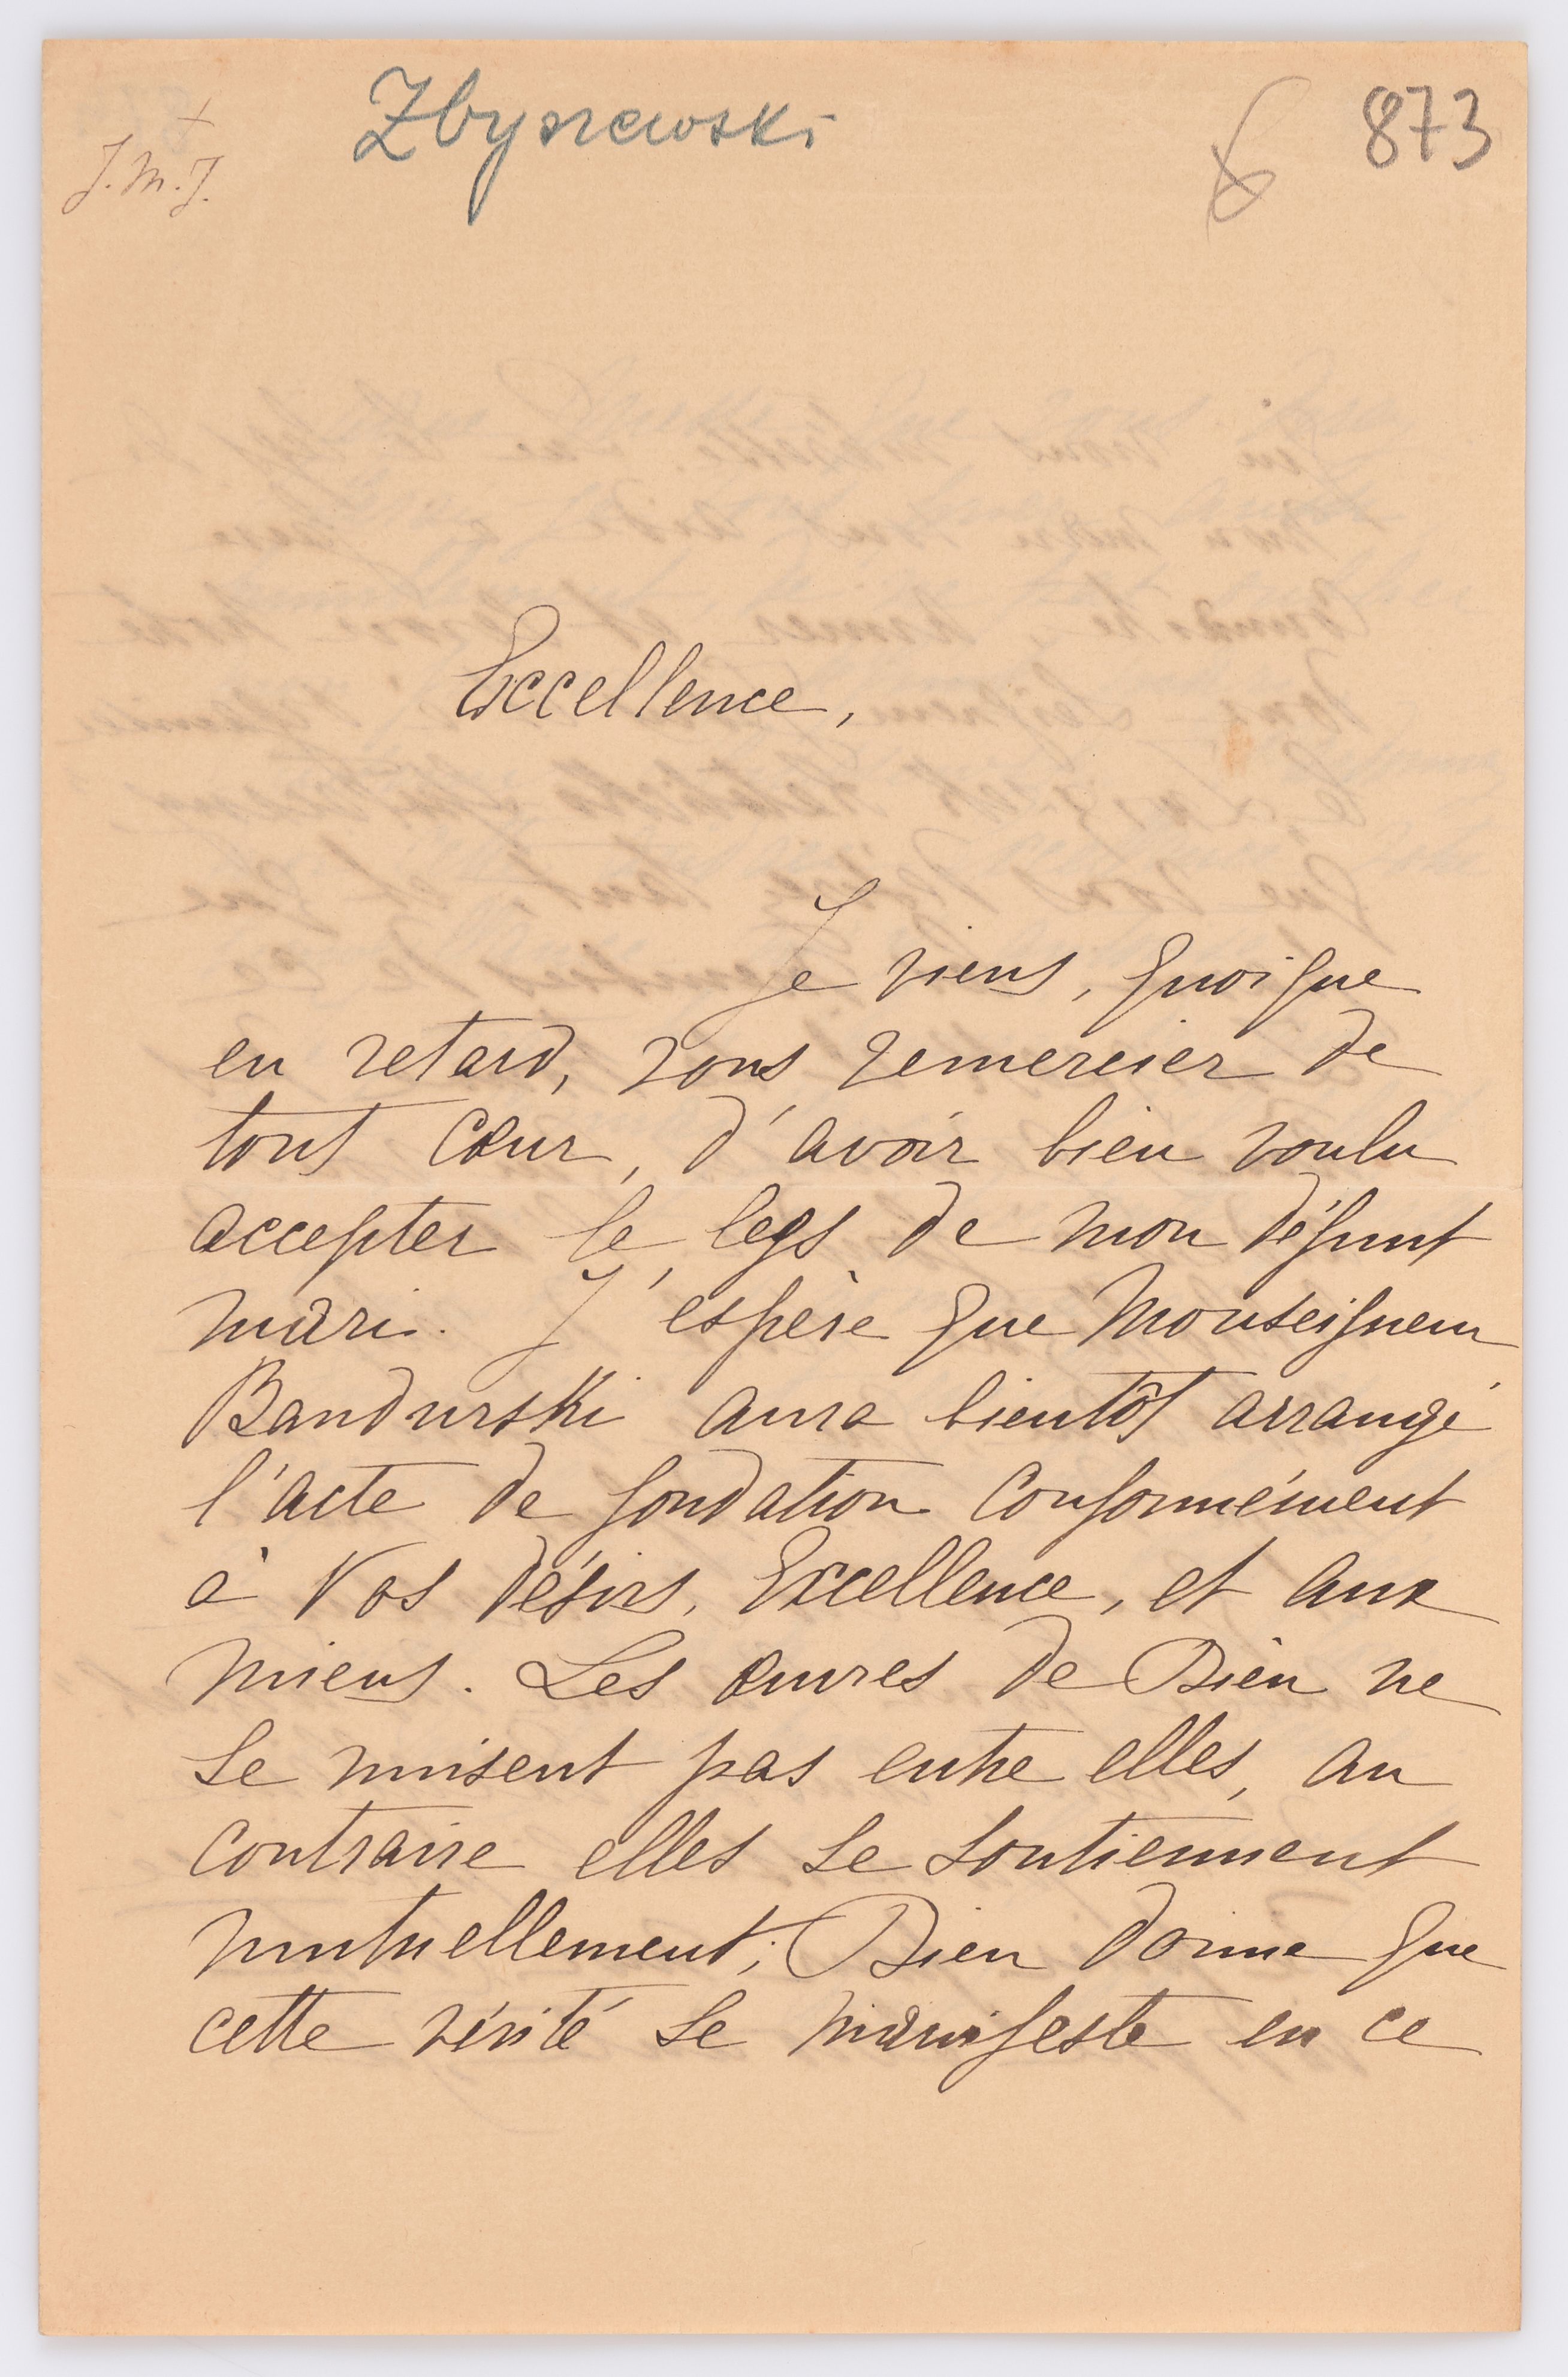 Zbyszewski
873
+
J. M. J.
Excellence,
Je viens, quoique
en retard, vous remercier de
tout cœur, d'avoir bien voulu
accepter le legs de mon défunt
mari. J'espère que Monseigneur
Bandurski aura bientôt arrangé
l'acte de fondation conformément
à Vos désirs, Excellence, et aux
miens. Les œuvres de Dieu ne
se nuisent pas entre elles, au
contraire elles se soutiennent
mutuellement; Dieu donne que
cette vérité se manifeste en ce